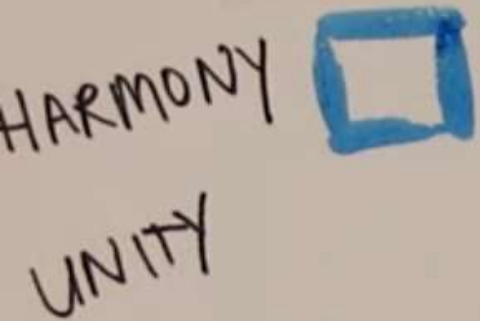 HARMONY
UNITY